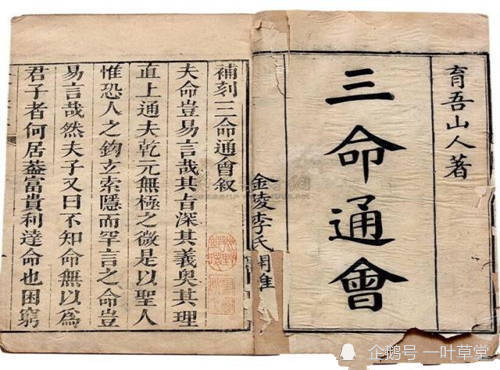 育吾山人著
三命通會
金陵李氏
補刻三命通會叙
夫命豈易言哉其旨深其義奧其理
直上通夫乾元無極之微是以聖人
惟恐人之鈎立索隱而罕言之命豈
易言哉然夫子又曰不知命無以爲
君子者何居葢富貴利達命也困窮
企鹅号 一叶草堂